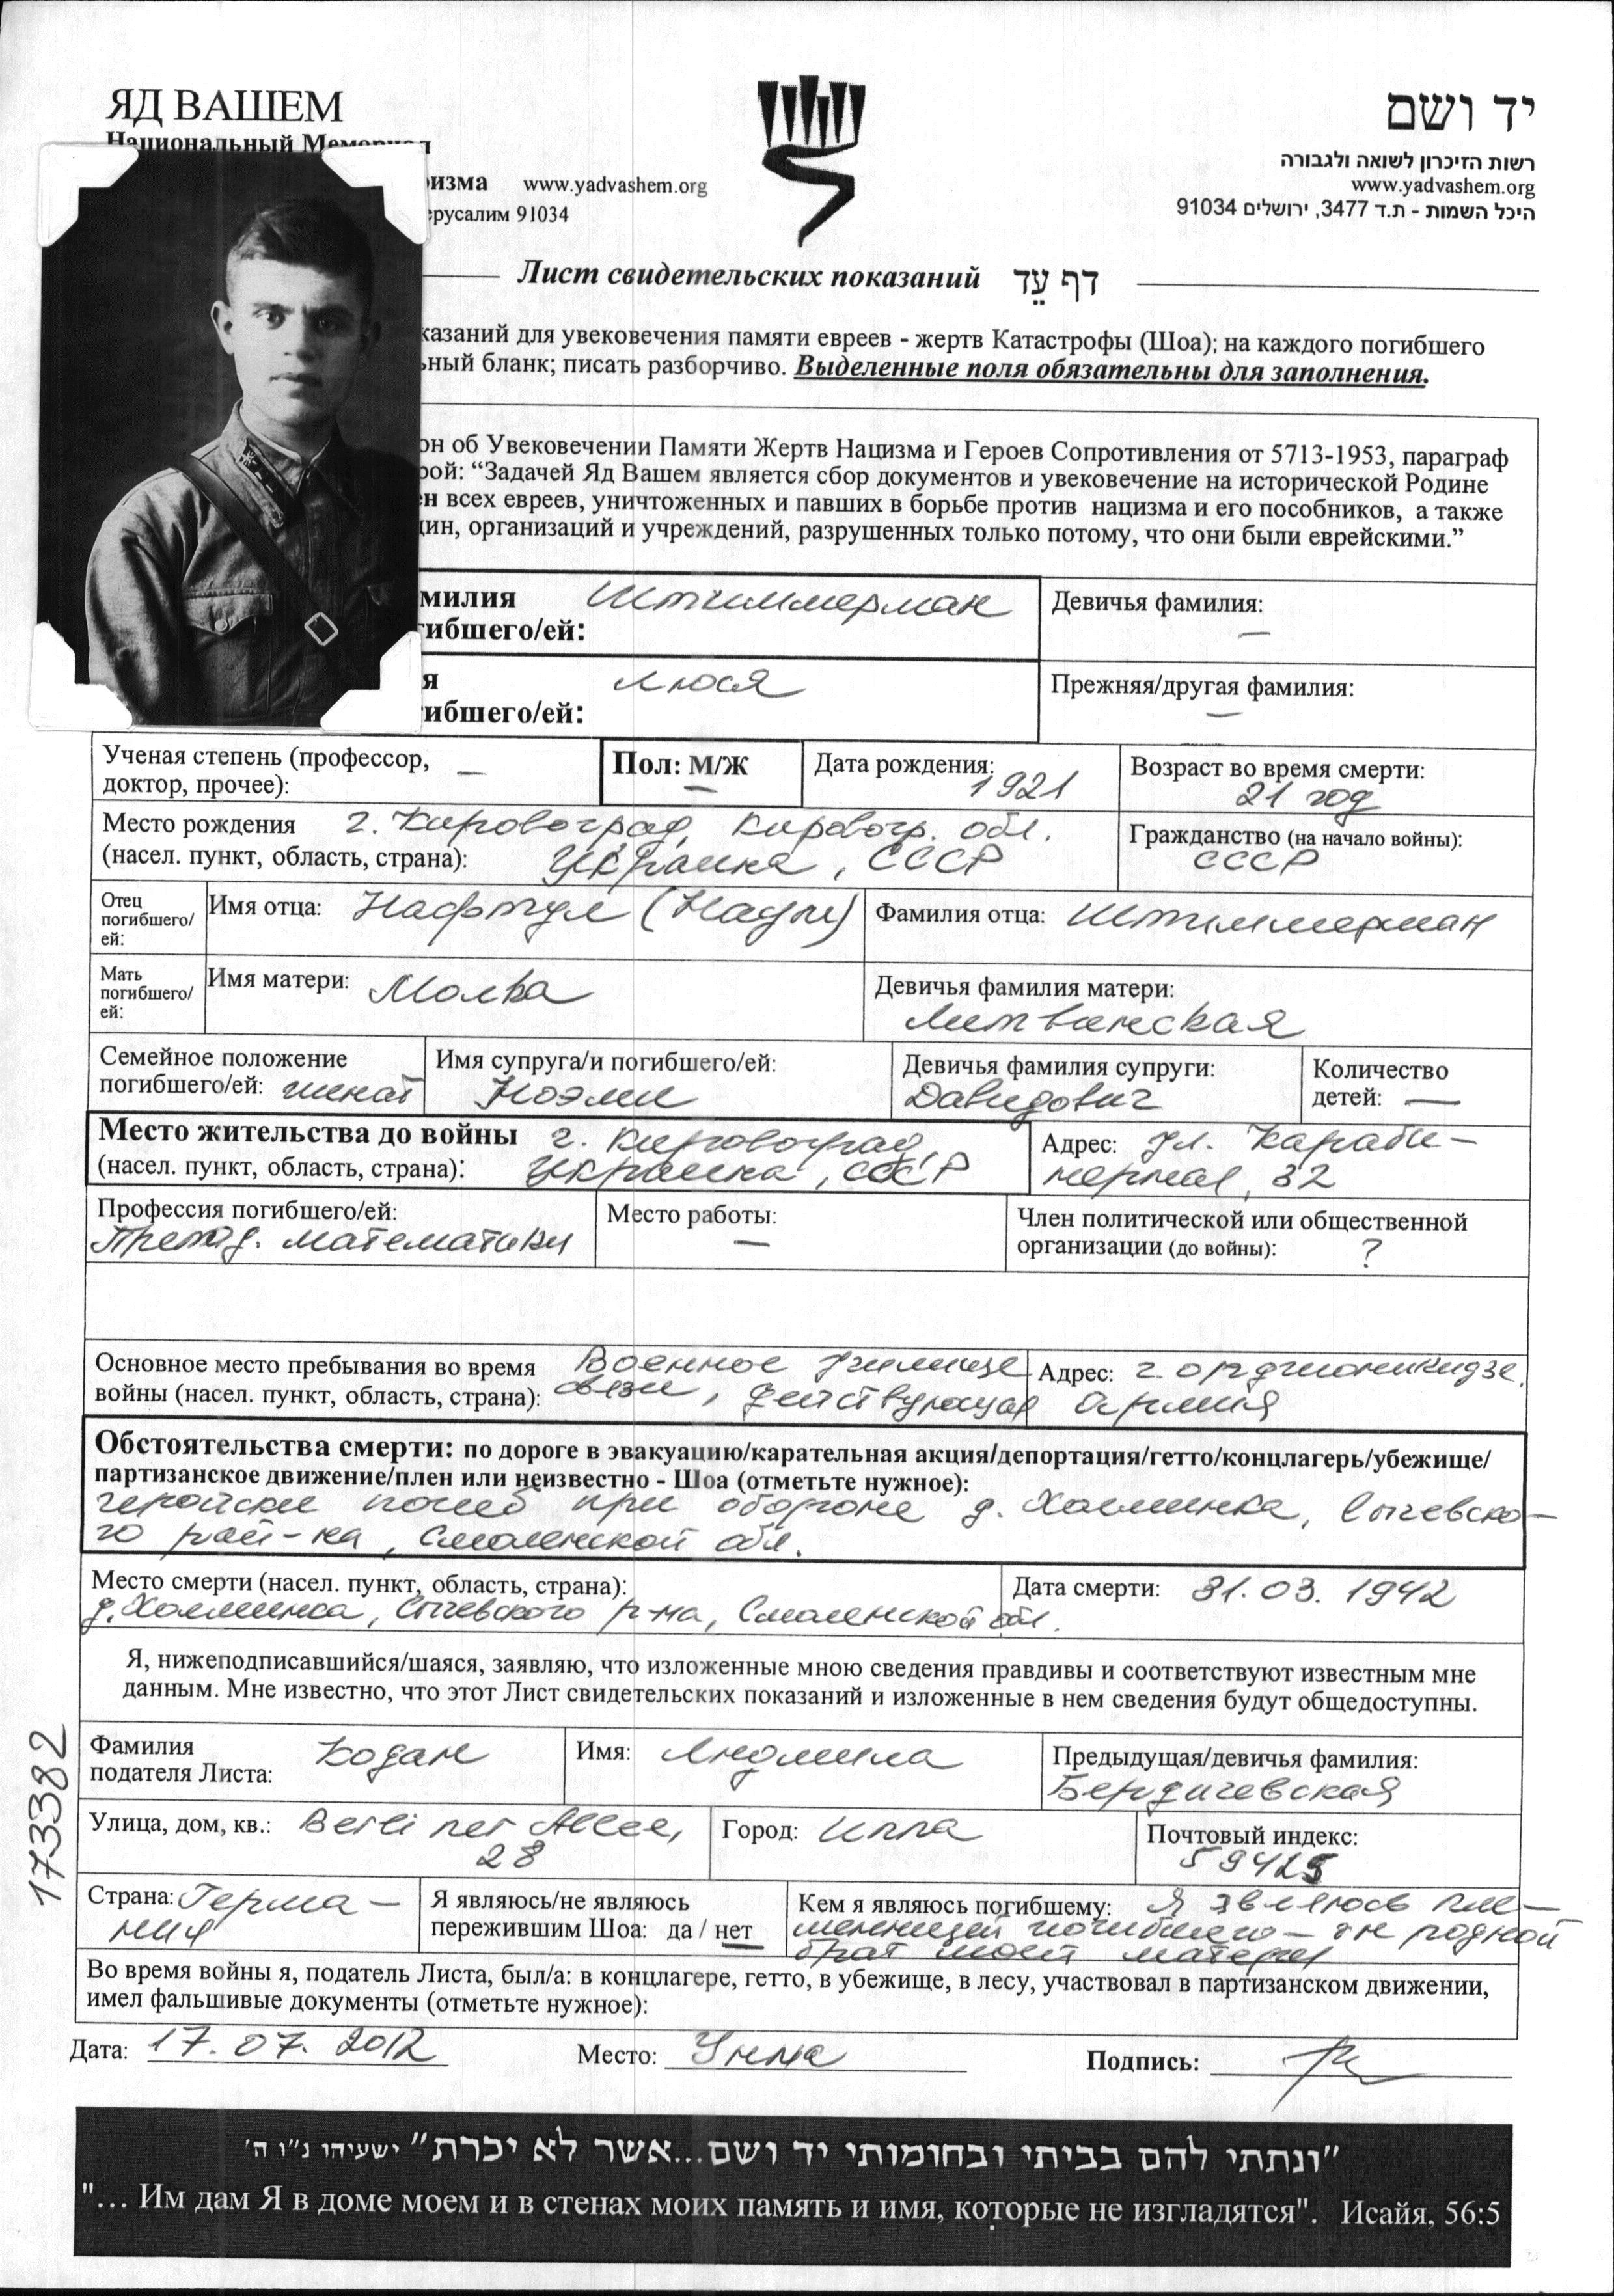 ЯД ВАШЕМ
Национальный Мемориал
www.yadvashem.org
91034
יד ושם
רשות הזיכרון לשואה ולגבורה
www.yadvashem.org
היכל השמות - ת.ד 3477, ירושלים 91034
Лист свидетельских показаний דף עֵד
казаний для увековечения памяти евреев - жертв Катастрофы (Шоа); на каждого погибшего
ный бланк; писать разборчиво. Выделенные поля обязательны для заполнения.
он об Увековечении Памяти Жертв Нацизма и Героев Сопротивления от 5713-1953, параграф
рой: “Задачей Яд Вашем является сбор документов и увековечение на исторической Родине
ен всех евреев, уничтоженных и павших в борьбе против нацизма и его пособников, а также
ин, организаций и учреждений, разрушенных только потому, что они были еврейскими.”
милия Штиммерман
гибшего/ей:
Девичья фамилия: —
я Люся
гибшего/ей:
Прежняя/другая фамилия: —
Ученая степень (профессор, —
доктор, прочее):
Пол: М/Ж
Дата рождения: 1921
Возраст во время смерти:
21 год
Место рождения г. Кировоград, Кировогр. обл.
(насел. пункт, область, страна): Украина, СССР
Гражданство (на начало войны):
СССР
Отец
погибшего/
ей:
Имя отца: Нафтул
Фамилия отца: Штиммерман
Мать
погибшего/
ей:
Имя матери: Молка
Девичья фамилия матери:
Литвинская
Семейное положение
погибшего/ей: женат
Имя супруга/и погибшего/ей:
Ноэми
Девичья фамилия супруги:
Давидович
Количество
детей: —
Место жительства до войны г. Кировоград,
(насел. пункт, область, страна): Украина, СССР
Адрес: ул. Караби-
нерная, 32
Профессия погибшего/ей:
Препод. математики
Место работы:
—
Член политической или общественной
организации (до войны): ?
Основное место пребывания во время Военное училище
войны (насел. пункт, область, страна): связи, действующая армия
Адрес: г. Орджоникидзе,
Обстоятельства смерти: по дороге в эвакуацию/карательная акция/депортация/гетто/концлагерь/убежище/
партизанское движение/плен или неизвестно - Шоа (отметьте нужное):
геройски погиб при обороне д. Холминка, Сычевско-
го рай-на, Смоленской обл.
Место смерти (насел. пункт, область, страна):
д. Холминка, Сычевского р-на, Смоленской обл.
Дата смерти: 31.03.1942
Я, нижеподписавшийся/шаяся, заявляю, что изложенные мною сведения правдивы и соответствуют известным мне
данным. Мне известно, что этот Лист свидетельских показаний и изложенные в нем сведения будут общедоступны.
Фамилия Кодан
подателя Листа:
Имя: Людмила
Предыдущая/девичья фамилия:
Бердичевская
Улица, дом, кв.: Berliner Allee,
28
Город: Унна
Почтовый индекс:
59425
Страна: Герма-
ния
Я являюсь/не являюсь
пережившим Шоа: да / нет
Кем я являюсь погибшему: Я являюсь пле-
мянницей погибшего - он родной
брат моей матери
Во время войны я, податель Листа, был/а: в концлагере, гетто, в убежище, в лесу, участвовал в партизанском движении,
имел фальшивые документы (отметьте нужное):
Дата: 17.07.2012
Место: Унна
Подпись:
173382
"ונתתי להם בביתי ובחומותי יד ושם...אשר לא יכרת" ישעיהו נ"ו ה'
"... Им дам Я в доме моем и в стенах моих память и имя, которые не изгладятся". Исайя, 56:5